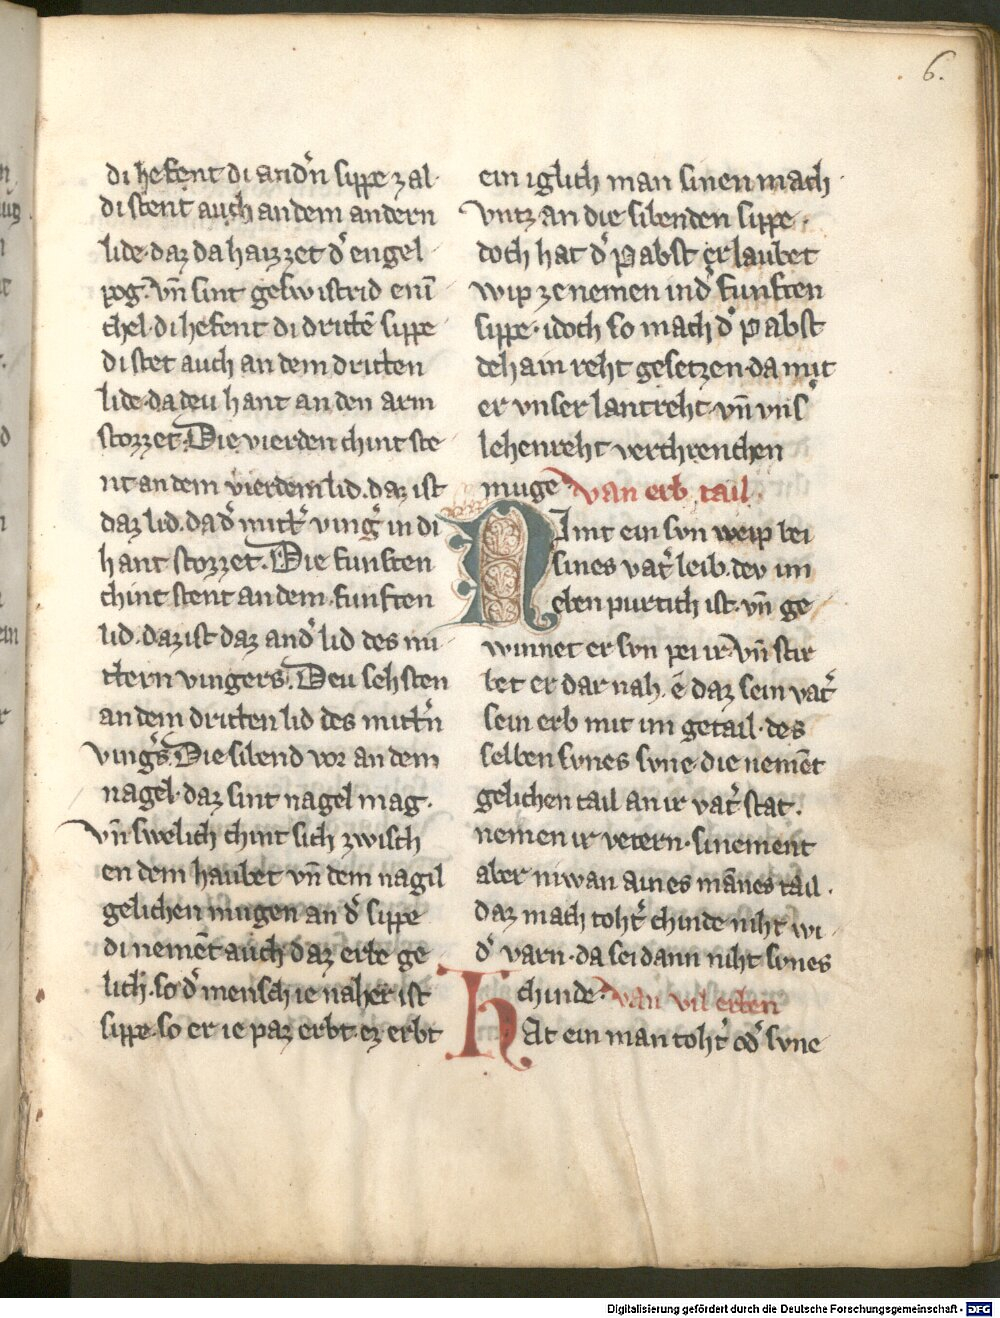 6.
di hefent di and̾n sippe zal·
di stent auch an dem andern
lide·daz da haizzet d̾ engel
pog·vn̄ sint geswistrid enī
chel·di hefent di drittē sippe
di stet auch an dem dritten
lide·da deu hant an den arm
stozzet·Die vierden chint ste
nt an dem vierdem lid·daz ist
daz lid·da d̾ mitt̾ ving̾ in di
hant stozzet·Die funften
chint stent an dem·funften
lid·daz ist daz and̾ lid des mi
ttern vingers·Deu sehsten
an dem dritten lid des mitt̾n
ving̾s·Die sibend vor an dem
nagel·daz sint nagel mag·
vn̄ swelich chint sich zwisch
en dem haubet vn̄ dem nagil
gelichen mugen an d̾ sippe
di nemēt auch daz erbe ge
lich·so d̾ mensch ie naher ist
sippe·so er ie paz erbt·ez erbt
ein iglich man sinen mach·
vntz an die sibenden sippe·
doch hat d̾ pabst erlaubet
wip ze nemen in d̾ funften
sippe·idoch so mach d̾ pabst
dehain reht gesetzen·da mit
er vnser lantreht·vn̄ vns̾
lehenreht verchrenchen
muge van erb tail·
Nimt ein svn weip bei
sines vat̾ leib·dev im
eben purtich ist·vn̄ ge
winnet er svn pei ir·vn̄ stir
bet er dar nah·ē daz sein vat̾
sein erb mit im getail·des
selben svnes svne·die nemēt
gelichen tail an ir vat̾ stat·
nemen ir vetern·sinement
aber niwan ain es mānes tail·
daz mach toht̾ chinde niht wi
d̾ varn·da sei dann niht svnes
chinde·van vil erben
Hat ein man toht̾ od̾ svne
Digitalisierung gefördert durch die Deutsche Forschungsgemeinschaft - DFG